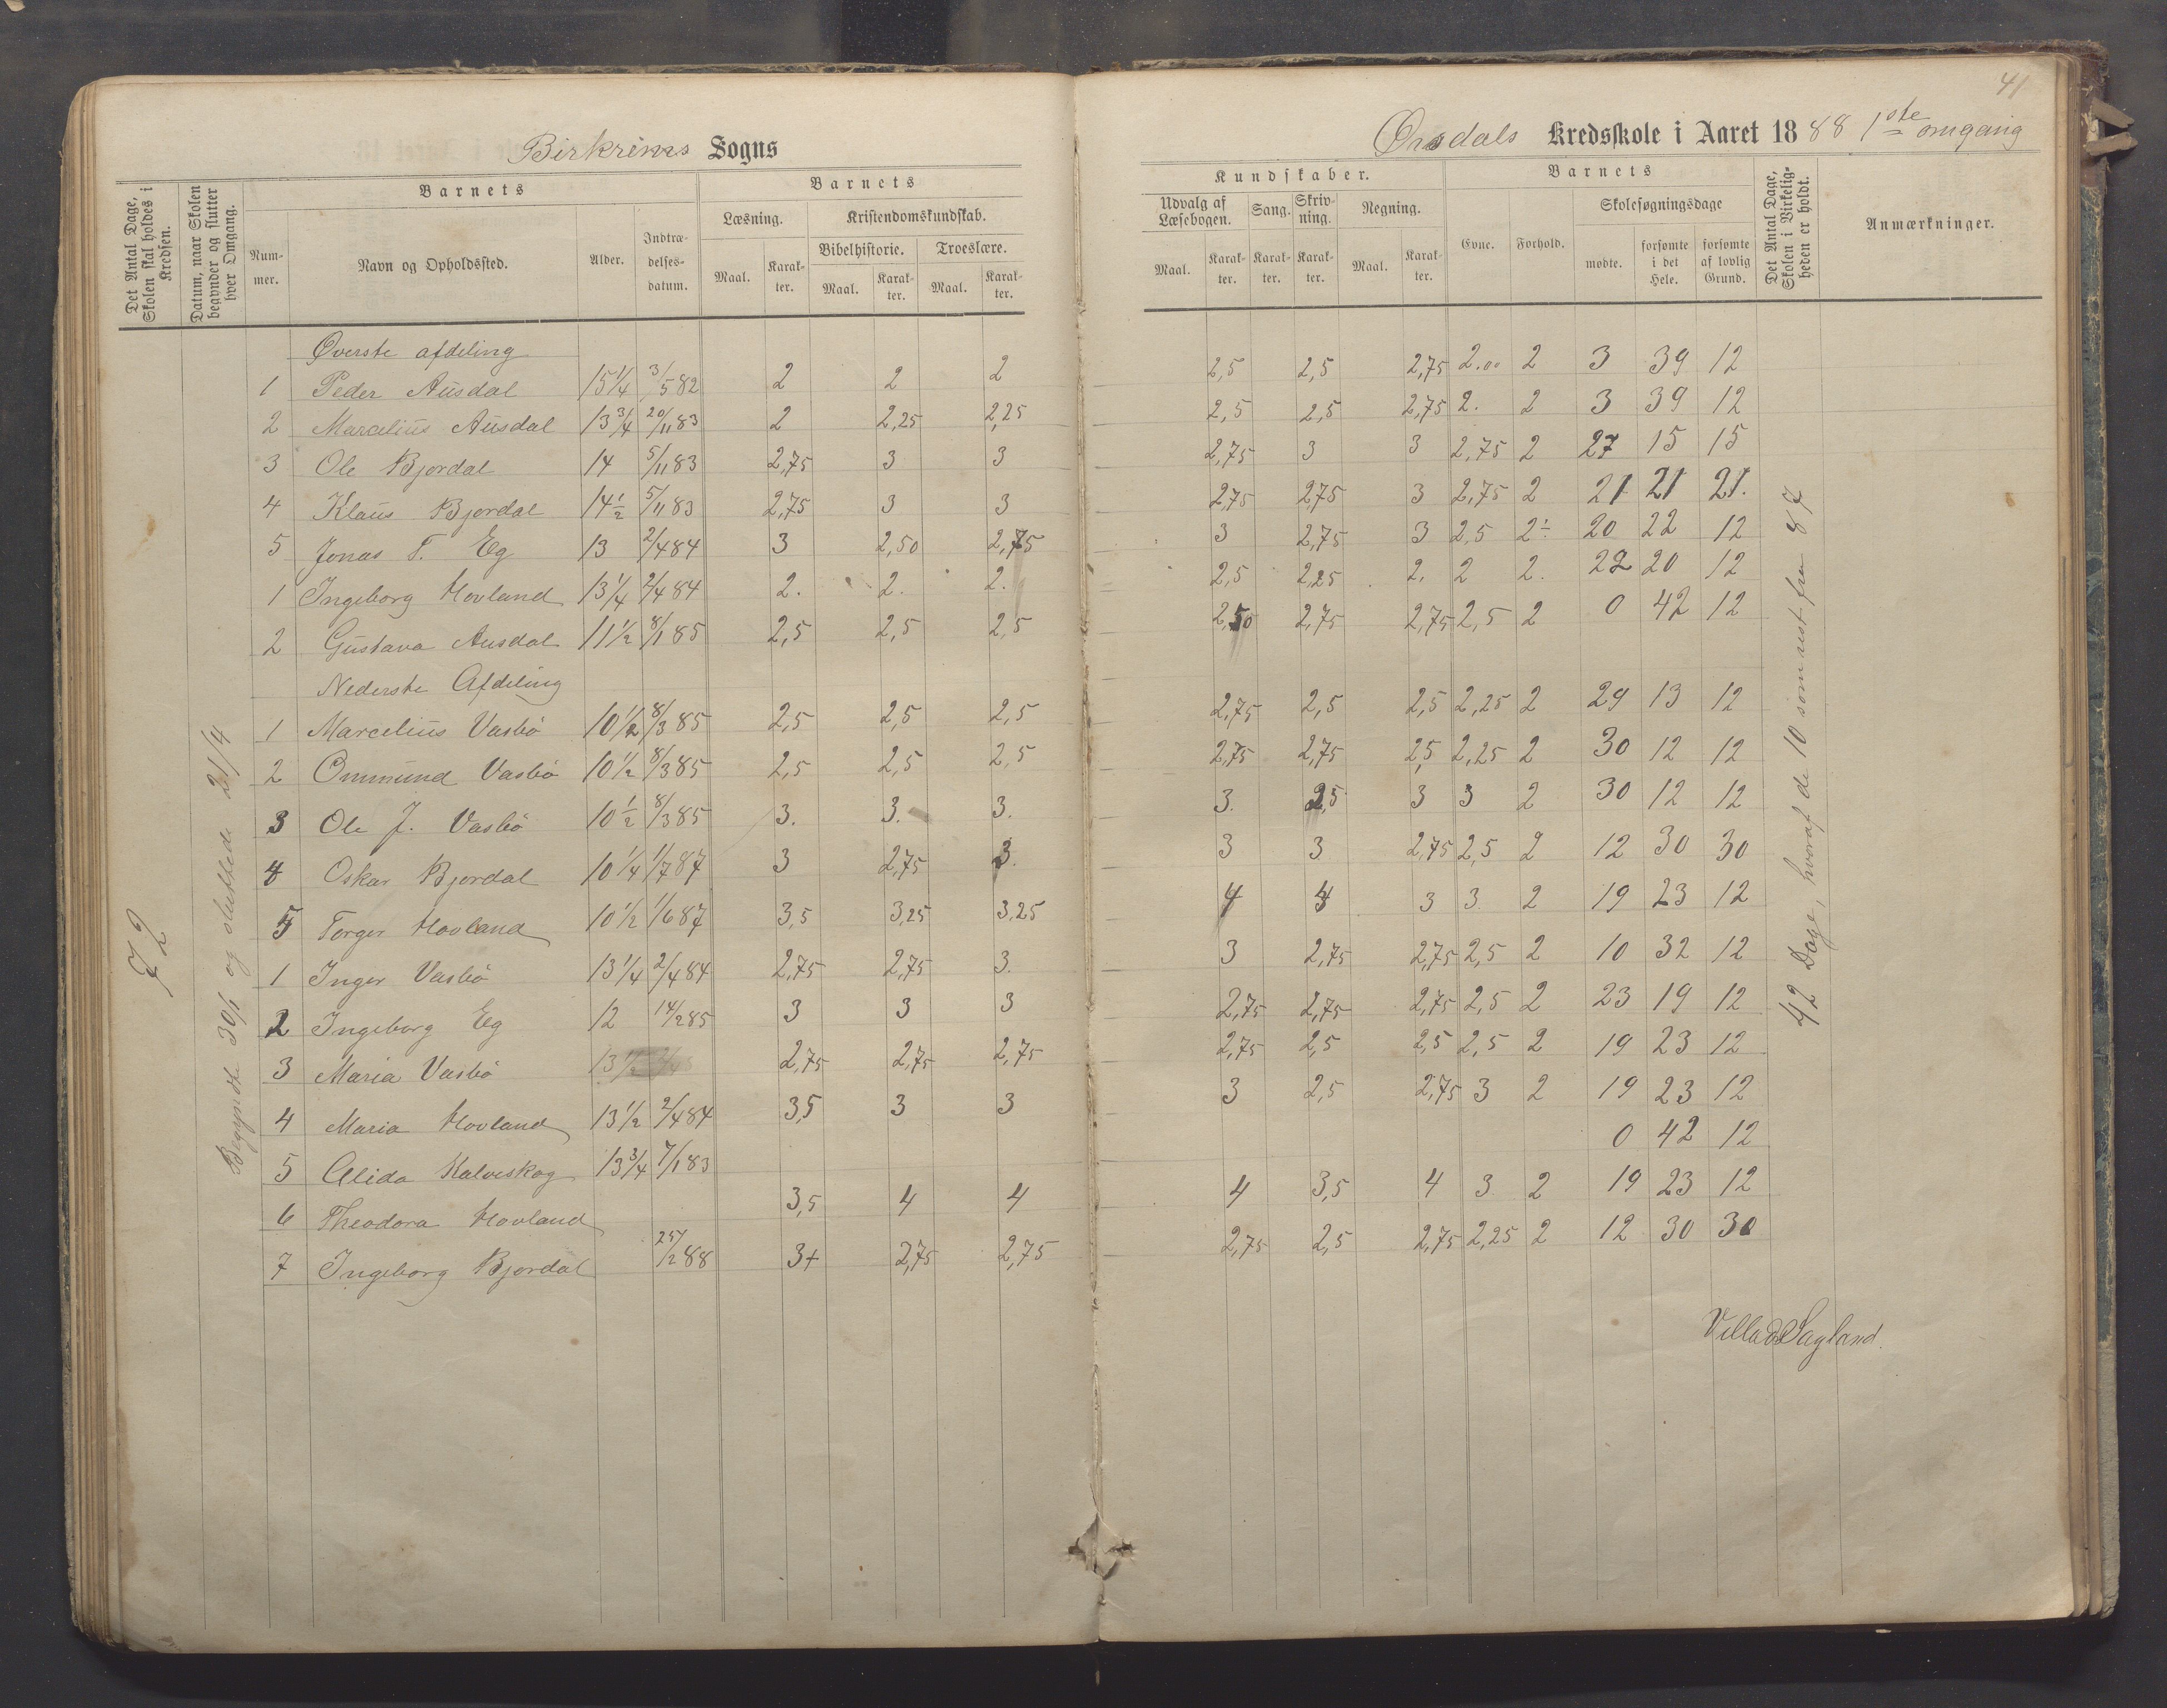 41
Birkrems Sogns
Ørsdals Kredsskole i Aaret 1888 1ste omgang
Det Antal Dage, Skolen skal holdes i Kredsen.
Datum, naar Skolen begynder og slutter hver Omgang.
Barnets
Nummer.
Navn og Opholdssted.
Alder.
Indtrædelsesdatum.
Barnets
Læsning.
Maal.
Karakter.
Kristendomskundskab.
Bibelhistorie.
Maal.
Karakter.
Troeslære.
Maal.
Karakter.
Kundskaber.
Udvalg af Læsebogen.
Maal.
Karakter.
Sang.
Karakter.
Skrivning.
Karakter.
Regning.
Maal.
Karakter.
Barnets
Evne.
Forhold.
Skolesøgningsdage
mødte.
forsømte i det Hele.
forsømte af lovlig Grund.
Det Antal Dage, Skolen i Virkeligheden er holdt.
Anmærkninger.
72
Begyndte 30/1 og sluttede 21/4
Øverste afdeling
1 Peder Ausdal 15 1/4 3/5 82 2 2 2 2,5 2,5 2,75 2.00 2 3 39 12
2 Marcelius Ausdal 13 3/4 20/11 83 2 2,25 2,25 2,5 2,5 2,75 2. 2 3 39 12
3 Ole Bjordal 14 5/11 83 2,75 3 3 2,75 3 3 2,75 2 27 15 15
4 Klaus Bjordal 14 1/2 5/11 83 2,75 3 3 2,75 2,75 3 2,75 2 21 21 21.
5 Jonas T. Eg 13 2/4 84 3 2,50 2,75 3 2,75 3 2,5 2÷ 20 22 12
1 Ingeborg Hovland 13 1/4 2/4 84 2. 2. 2. 2,5 2,25 2. 2 2. 22 20 12
2 Gustava Ausdal 11 1/2 8/1 85 2,5 2,5 2,5 2,50 2,75 2,75 2,5 2 0 42 12
Nederste Afdeling
1 Marcelius Vasbö 10 1/2 8/3 85 2,5 2,5 2,5 2,75 2,5 2,5 2,25 2 29 13 12
2 Ommund Vasbö 10 1/2 8/3 85 2,5 2,5 2,5 2,75 2,75 2,5 2,25 2 30 12 12
3 Ole J. Vasbö 10 1/2 8/3 85 3. 3. 3. 3. 2,5 3 3 2 30 12 12
4 Oskar Bjordal 10 1/4 1/7 87 3 2,75 3. 3 3 2,75 2,5 2 12 30 30
5 Torger Hovland 10 1/2 1/6 87 3,5 3,25 3,25 4 4 3 3. 2 19 23 12
1 Inger Vasbö 13 1/4 2/4 84 2,75 2,75 3. 3 2,75 2,75 2,5 2 10 32 12
2 Ingeborg Eg 12 14/2 85 3 3 3 2,75 2,75 2,75 2,5 2 23 19 12
3 Maria Vasbö 13 1/2 2,75 2,75 2,75 2,75 2,5 2,5 2,5 2 19 23 12
4 Maria Hovland 13 1/2 2/4 84 3,5 3 3 3 2,5 2,75 3 2 19 23 12
5 Alida Kalveskog 13 3/4 7/1 83 0 42 12
6 Theodora Hovland 3,5 4 4 4 3,5 4 3 2 19 23 12
7 Ingeborg Bjordal 25/2 88 3+ 2,75 2,75 2,75 2,5 2,75 2,25 2 12 30 30
42 Dage, hvoraf de 10 som rest fra 87
Villads Sagland.